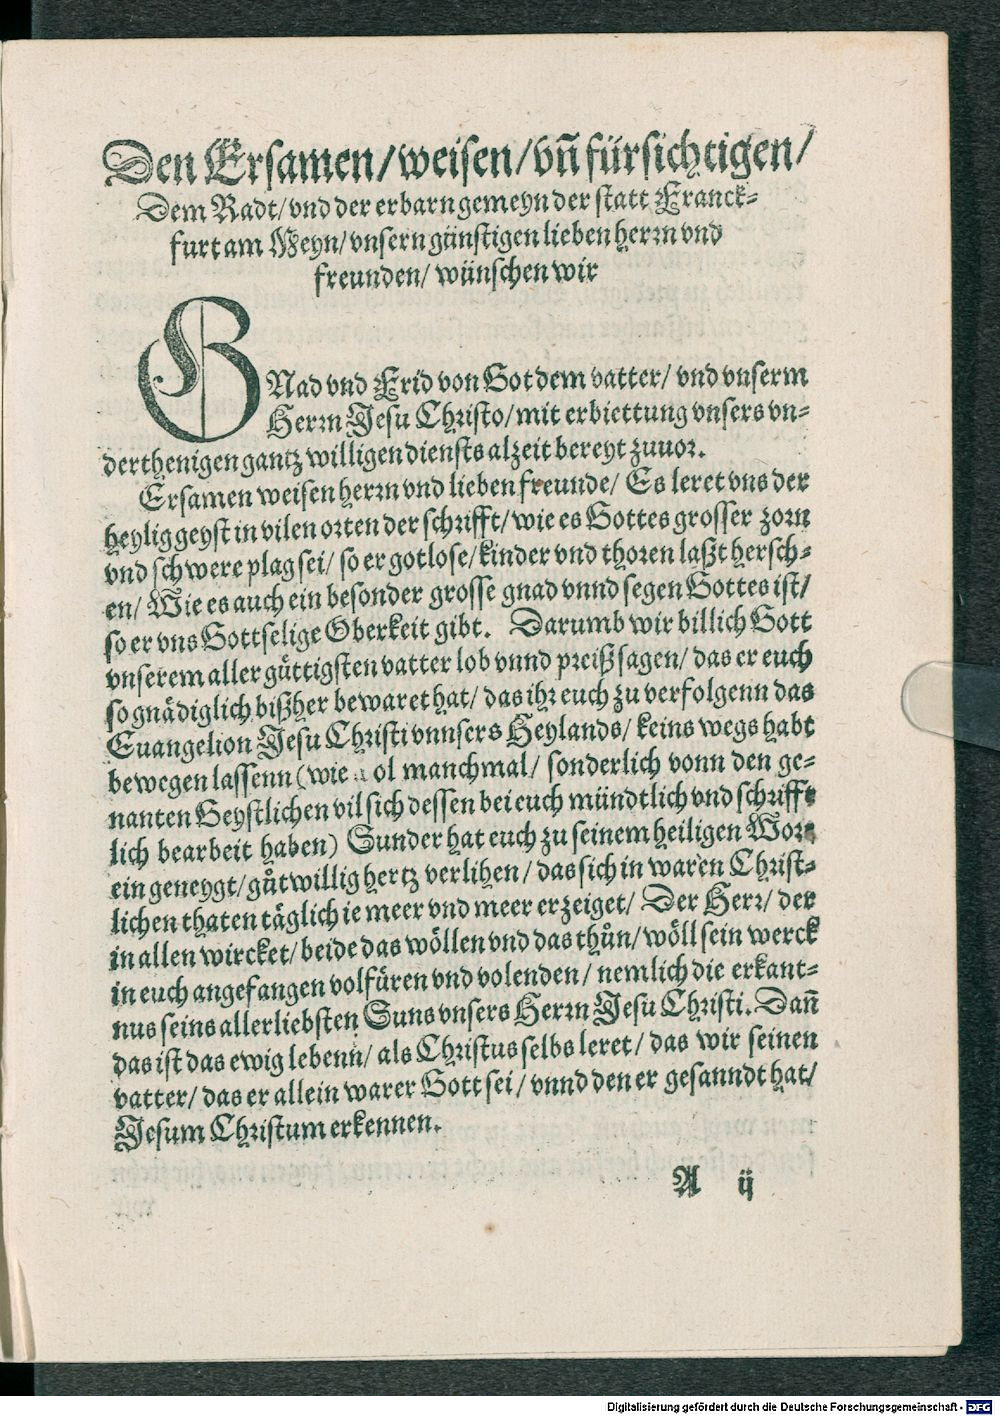 Den Ersamen/ weisen/ vn̄ fürsichtigen/
Dem Radt/ vnd der erbarn gemeyn der statt Franck-
furt am Meyn/ vnsern günstigen lieben herrn vnd
freunden/ wünschen wir
GNad vnd Frid von Got dem vatter/ vnd vnserm
Herrn Jesu Christo/ mit erbiettung vnsers vn-
derthenigen gantz willigen diensts alzeit bereyt zuuor.
Ersamen weisen herrn vnd lieben freunde/ Es leret vns der
heylig geyst in vilen orten der schrifft/ wie es Gottes grosser zorn
vnd schwere plag sei/ so er gotlose/ kinder vnd thoren laßt hersch-
en/ Wie es auch ein besonder grosse gnad vnnd segen Gottes ist/
so er vns Gottselige Oberkeit gibt. Darumb wir billich Gott
vnserem aller güttigsten vatter lob vnnd preiß sagen/ das er euch
so gnädiglich bißher bewaret hat/ das ihr euch zu verfolgenn das
Euangelion Jesu Christi vnnsers Heylands/ keins wegs habt
bewegen lassenn (wie ol manchmal/ sonderlich vonn den ge-
nanten Geystlichen vil sich dessen bei euch mündtlich vnd schrifft
lich bearbeit haben) Sunder hat euch zu seinem heiligen Wort
ein geneygt/ gůtwillig hertz verlihen/ das sich in waren Christ-
lichen thaten täglich ie meer vnd meer erzeiget/ Der Herr/ der
in allen wircket/ beide das wöllen vnd das thůn/ wöll sein werck
in euch angefangen volfüren vnd volenden/ nemlich die erkant-
nus seins allerliebsten Suns vnsers Herrn Jesu Christi. Dañ
das ist das ewig lebenn/ als Christus selbs leret/ das wir seinen
vatter/ das er allein warer Gott sei/ vnnd den er gesanndt hat/
Jesum Christum erkennen.
A ij
Digitalisierung gefördert durch die Deutsche Forschungsgemeinschaft - DFG